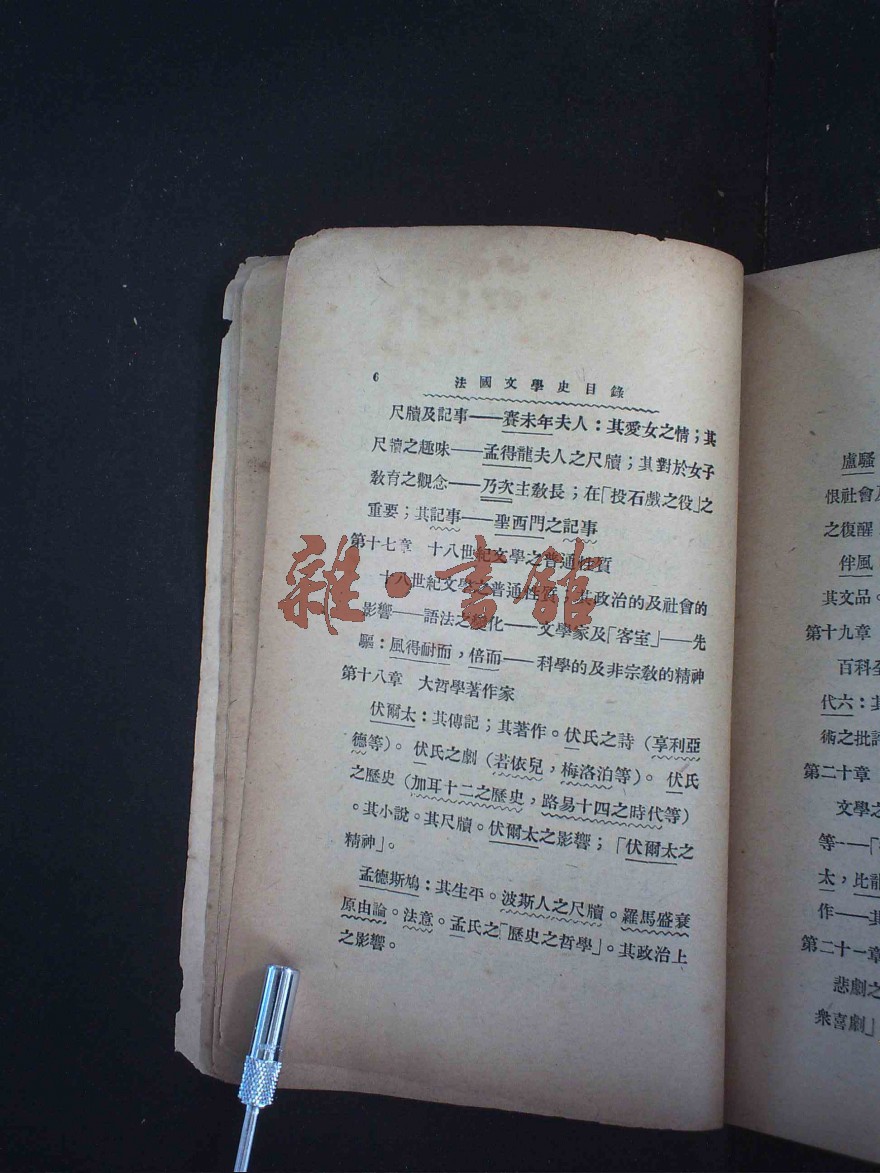 6 法國文學史目錄
尺牘及記事——賽未年夫人：其愛女之情；其
尺牘之趣味——孟得龍夫人之尺牘；其對於女子
教育之觀念——乃次主教長；在「投石戲之役」之
重要；其記事——聖西門之記事
第十七章 十八世紀文學之普通性質
十八世紀文學之普通性質；其政治的及社會的
影響——語法之變化——文學家及「客室」——先
驅：風得耐而，倍而——科學的及非宗教的精神
第十八章 大哲學著作家
伏爾太：其傳記；其著作。伏氏之詩（享利亞
德等）。伏氏之劇（若依兒，梅洛泊等）。伏氏
之歷史（加耳十二之歷史，路易十四之時代等）
。其小說。其尺牘。伏爾太之影響；「伏爾太之
精神」。
孟德斯鳩：其生平。波斯人之尺牘。羅馬盛衰
原由論。法意。孟氏之「歷史之哲學」。其政治上
之影響。
盧騷
恨社會及
之復醒
伴風
其文品。
第十九章
百科全
代六：其
術之批評
第二十章
文學之
等——「
太，比龍
作——其
第二十一章
悲劇之
衆喜劇」
雜·書館